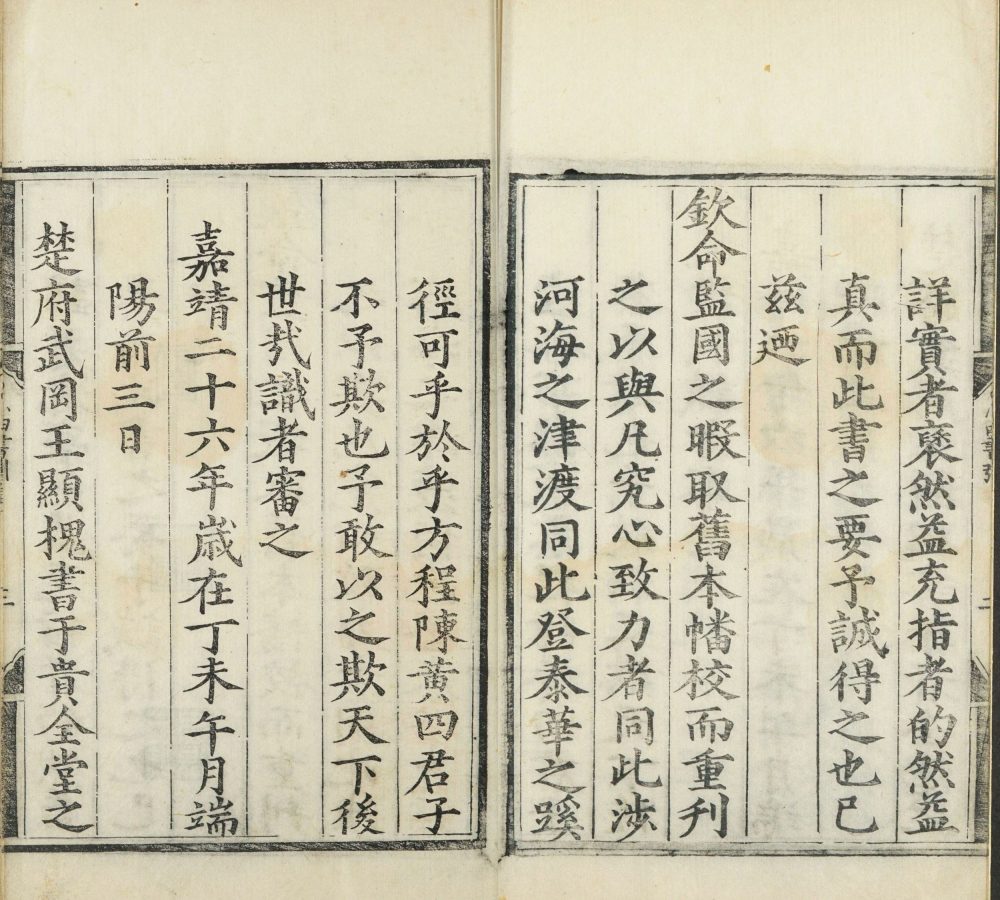 詳實者裒然益充指者的然益
真而此書之要予誠得之也已
茲迺
欽命監國之暇取舊本幡校而重刋
之以與凡究心致力者同此涉
河海之津渡同此登泰華之蹊
徑可乎於乎方程陳黄四君子
不予欺也予敢以之欺天下後
世㢤識者審之
嘉靖二十六年歳在丁未午月端
陽前三日
楚府武岡王顯槐書于貴全堂之